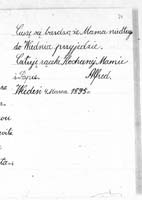 Cieszę się bardzo, że Mama niedługo
do Wiednia przyjedzie.
Całuję rączki Kochanej Mamie
i Papie. Alfred.
Wiedeń 4 marca 1895.